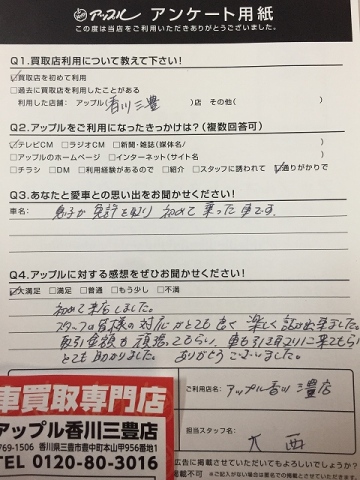 アップル アンケート用紙
この度は当店をご利用いただきありがとうございました。
Q1.買取店利用について教えて下さい!
☑買取店を初めて利用
□過去に買取店を利用したことがある
利用した店舗: アップル(香川三豊)店 その他( )
Q2.アップルをご利用になったきっかけは?(複数回答可)
☑テレビCM □ラジオCM □新聞・雑誌(媒体名/ )
□アップルのホームページ □インターネット(サイト名 )
□チラシ □DM □利用経験があるので □紹介 □スタッフに誘われて ☑通りがかりで
Q3.あなたと愛車との思い出をお聞かせください!
車名: 息子が免許を取り 初めて乗った車です。
Q4.アップルに対する感想をぜひお聞かせください!
☑大満足 □満足 □普通 □もう少し □不満
初めて来店しました。
スタッフの皆様の対応がとても良く 楽しく話が出来ました。
取引金額も頑張ってもらい、車も引き取りに来てもらい
とても助かりました。 ありがとうございました。
車買取専門店
アップル香川三豊店
769-1506 香川県三豊市豊中町本山甲956番地1
TEL 0120-80-3016
ご利用店名: アップル香川三豊店
担当スタッフ名: 大西
広告に掲載させていただいてもよろしいでしょうか?
掲載不可